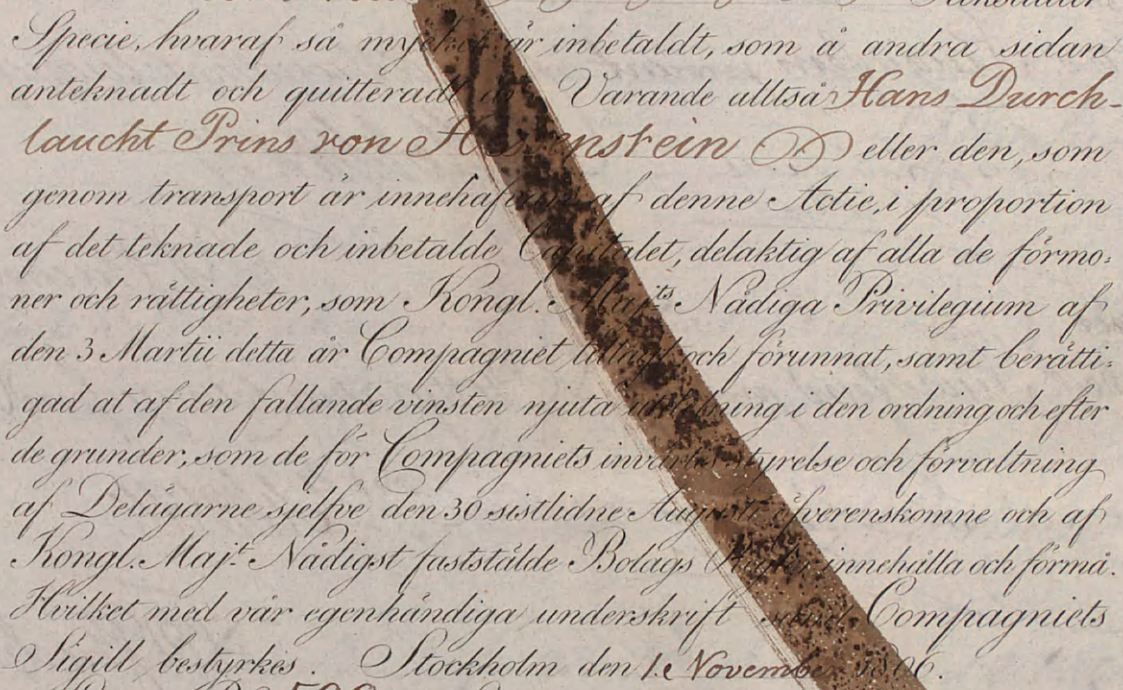 Specie, hvaraf så mycket är inbetaldt, som å andra sidan
anteknadt och quitteradt är. Varande alltså Hans Durch-
laucht Prins von eller den, som
genom transport är innehafvare af denne Actie, i proportion
af det teknade och inbetalde Capitalet, delaktig af alla de förmo:
ner och rättigheter, som Kongl. Maj:ts Nådiga Privilegium af
den 3 Martii detta år Compagniet och förunnat, samt berätti:
gad at af den fallande vinsten njuta utdelning i den ordning och efter
de grunder, som de för Compagniets invärtes styrelse och förvaltning
af Delägarne sjelfve den 30 sistlidne Augusti öfverenskomne och af
Kongl. Maj:t Nådigst faststälde Bolags innehålla och förmå.
Hvilket med vår egenhändiga underskrift samt Compagniets
Sigill bestyrkes. Stockholm den 1. November 1806.
500